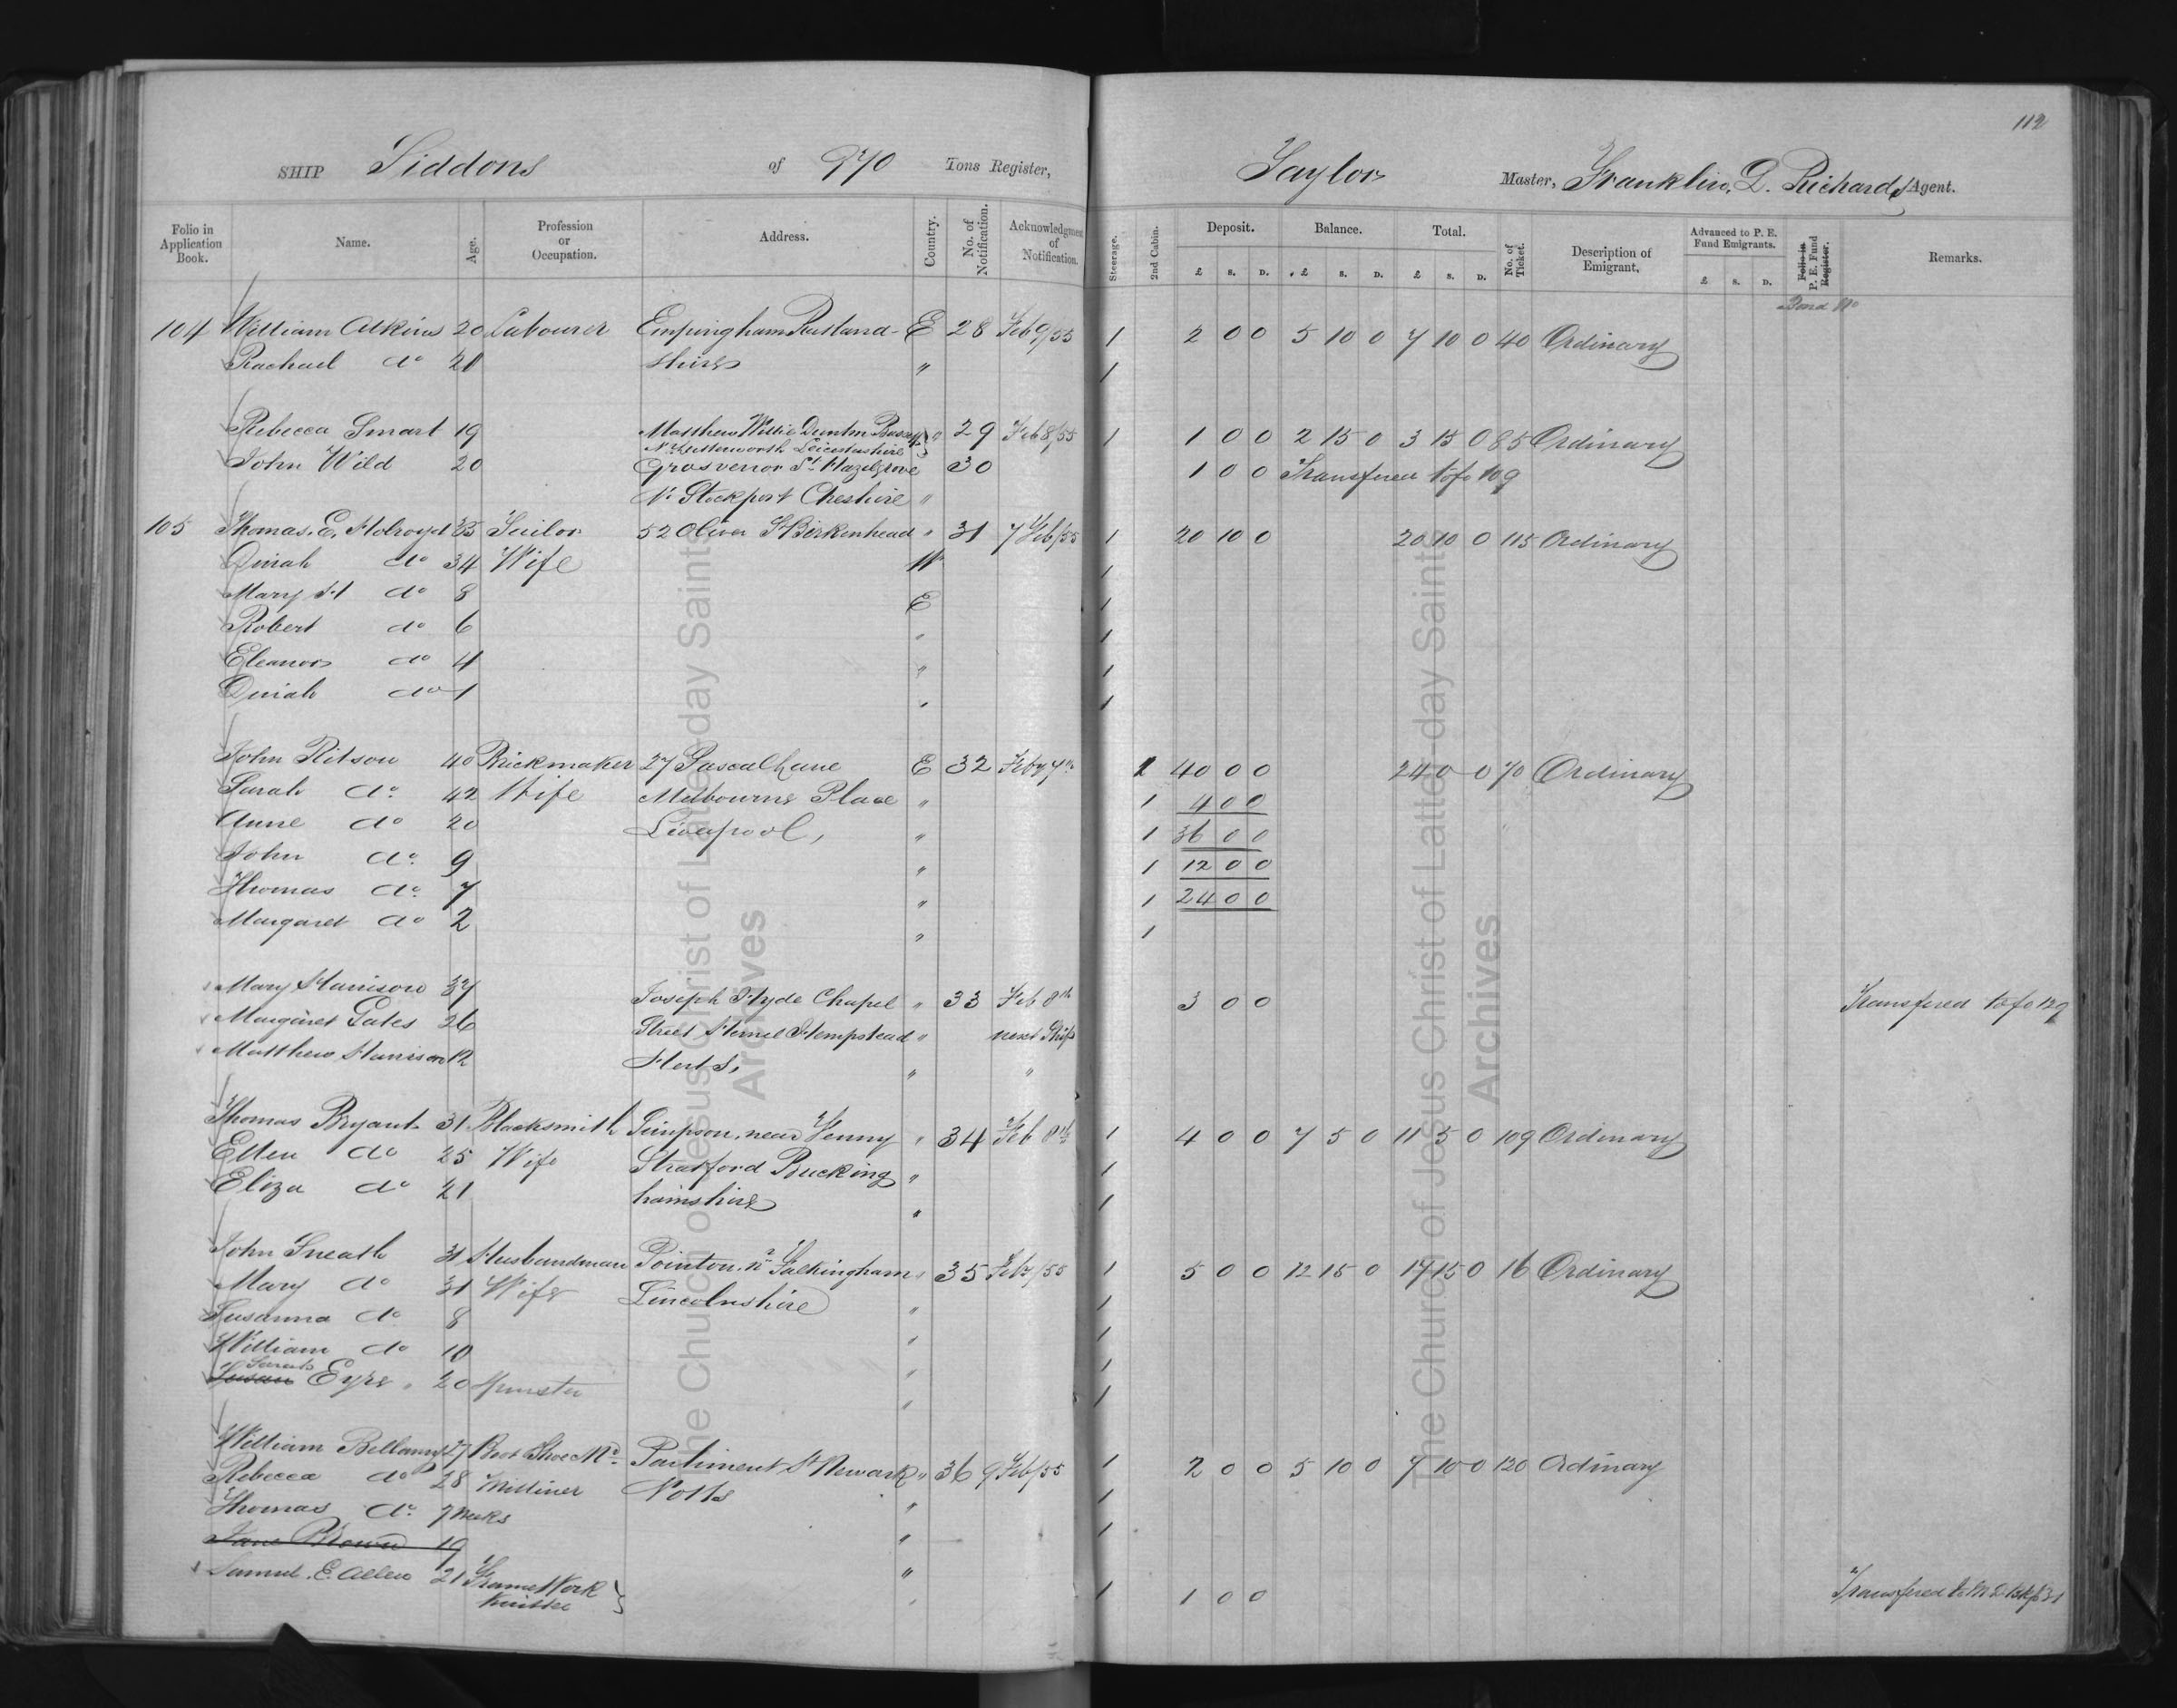 112
SHIP Siddons of 970 Tons Register, Taylor Master, Franklin. D. Richards Agent.
Folio in Application Book. Name. Age. Profession or Occupation. Address. Country. No. of Notification. Acknowledgment of Notification. Steerage. 2nd Cabin. Deposit. £ S. D. Balance. £ S. D. Total. £ S. D. No. of Ticket. Description of Emigrant. Advanced to P. E. Fund Emigrants. £ S. D. Folio in P. E. Fund Register. Remarks.
Bond No
104 William Atkins 20 Labourer Empingham Rutland- E 28 Feb 9/55 1 2 0 0 5 10 0 7 10 0 40 Ordinary
Rachael do 21 shire " 1
Rebecca Smart 19 Matthew Willis Dunton " 29 Feb 8/55 1 1 0 0 2 15 0 3 15 0 85 Ordinary
Nr Lutterworth Leicestershire
John Wild 20 Grosvenor St Hazelgrove 30 1 0 0 Transfered to fo 109
Nr Stockport Cheshire "
105 Thomas. E. Holroyd 35 Tailor 52 Oliver St Birkenhead " 31 7 Feb/55 1 20 10 0 20 10 0 115 Ordinary
Dinah do 34 Wife 1
Mary H do 8 E 1
Robert do 6 " 1
Eleanor do 4 " 1
Dinah do 1 " 1
John Ritson 40 Brickmaker 27 Pascal Lane E 32 Feby 7th 1 40 0 0 24 0 0 70 Ordinary
Sarah do. 42 Wife Melbourne Place " 1 4 0 0
Anne do 20 Liverpool, " 1 36 0 0
John do. 9 " 1 12 0 0
Thomas do. 7 " 1 24 0 0
Margaret do 2 " 1
Mary Harrison 37 Joseph Hyde Chapel " 33 Feb 8th 3 0 0 Transfered to fo 129
Margaret Gates 26 Street Hemel Hempstead " next Ship
Matthew Harrison 12 Herts, " "
Thomas Bryant 31 Blacksmith Simpson, near Fenny " 34 Feb 8th 1 4 0 0 7 5 0 11 5 0 109 Ordinary
Ellen do 25 Wife Stratford Bucking " 1
Eliza do 21 hamshire " 1
John Sneath 31 Husbandman Pointon, nr Falkingham " 35 Feb /55 1 5 0 0 12 15 0 17 15 0 16 Ordinary
Mary do 31 Wife Lincolnshire " 1
Susanna do 8 " 1
William do 10 " 1
Sarah
Susan Eyre " 20 Spinster " 1
William Bellamy 27 Boot Shoe Mr. Parliment St Newark " 36 9 Feb/55 1 2 0 0 5 10 0 7 10 0 120 Ordinary
Rebecca do 28 Milliner Notts " 1
Thomas do. 7 Weeks " 1
Jane Brown 19 "
Samuel. E. Allen 21 Frame Work " 1 1 0 0 Transfered to
Knitter
The Church of Jesus Christ of Latter-day Saints
Archives
The Church of Jesus Christ of Latter-day Saints
Archives